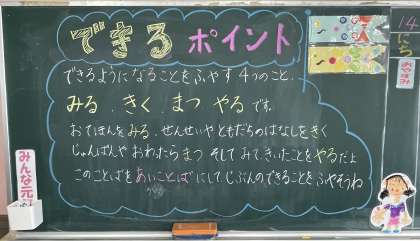 できる ポイント
できるようになることをふやす 4つのこと.
みる . きく . まつ やる です.
おてほんを みる . せんせいや ともだちの はなしを きく
じゅんばんや おわったら まつ そして みて、きいたことを やるだよ
このことばを あいことば にして、じぶんのできることを ふやそうね
14
にち
おやすみ
みんな元